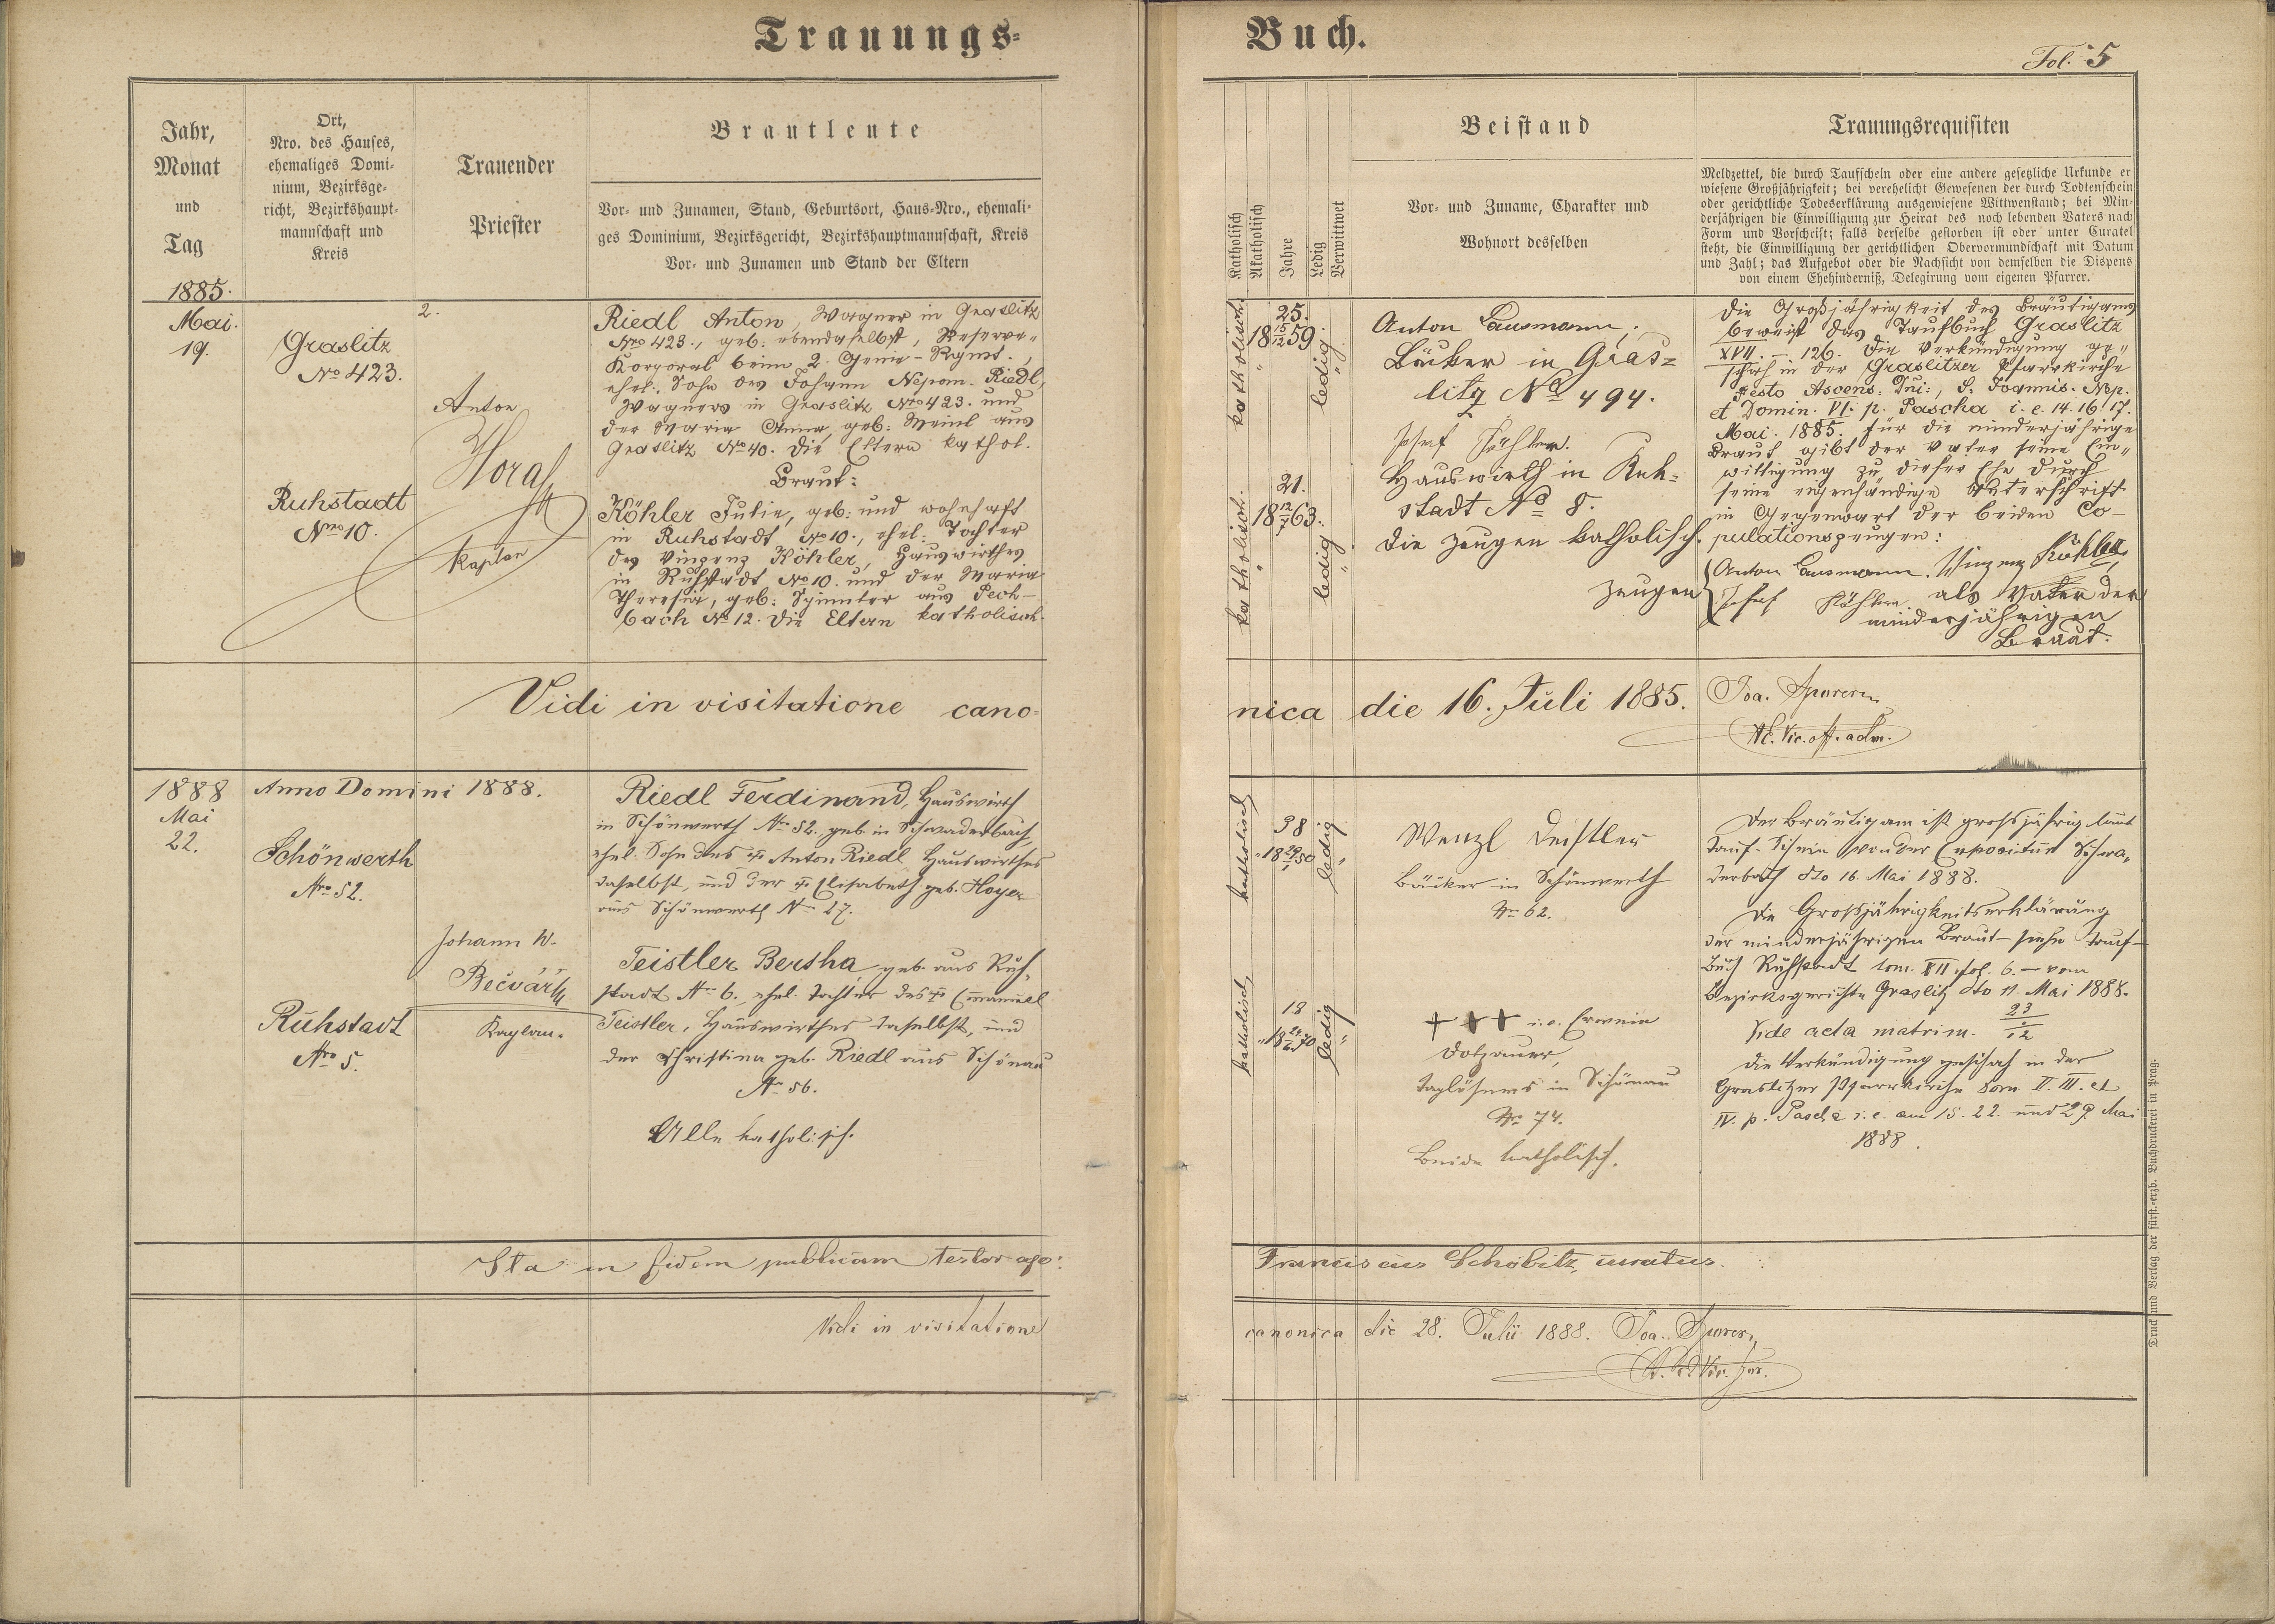 Trauungs-
Buch.
Fol. 5
Jahr,
Monat
und
Tag
Ort,
Nro. des Hauses,
ehemaliges Domi-
nium, Bezirksge-
richt, Bezirkshaupt-
mannschaft und
Kreis
Trauender
Priester
Brautleute
Vor- und Zunamen, Stand, Geburtsort, Haus-Nro., ehemali-
ges Dominium, Bezirksgericht, Bezirkshauptmannschaft, Kreis
Vor- und Zunamen und Stand der Eltern
Katholisch
Akatholisch
Jahre
Ledig
Verwittwet
Beistand
Vor- und Zuname, Charakter und
Wohnort desselben
Trauungsrequisiten
Meldzettel, die durch Taufschein oder eine andere gesetzliche Urkunde er
wiesene Großjährigkeit; bei verehelicht Gewesenen der durch Todtenschein
oder gerichtliche Todeserklärung ausgewiesene Wittwenstand; bei Min-
derjährigen die Einwilligung zur Heirat des noch lebenden Vaters nach
Form und Vorschrift; falls derselbe gestorben ist oder unter Curatel
steht, die Einwilligung der gerichtlichen Obervormundschaft mit Datum
und Zahl; das Aufgebot oder die Nachsicht von demselben die Dispens
von einem Ehehinderniß, Delegirung vom eigenen Pfarrer.
1885.
Mai.
19.
Graslitz
No 423.
Ruhstadt
Nro 10.
2.
Anton
Kaplan
Riedl Anton, Wagner in Graslitz
Nro 423., geb: ebendaselbst, Reserve-
Korporal beim 2. Genie-Rgmt.,
ehel: Sohn des Johann Nepom. Riedl,
Wagners in Graslitz Nro 423. und
der Maria Anna, geb: Meinl aus
Graslitz No 40. Die Eltern kathol.
Braut:
Köhler Julie, geb: und wohnhaft
in Ruhstadt No 10., ehel: Tochter
des Vinzenz Köhler, Hauswirthes
in Ruhstadt No 10. und der Maria
Theresia, geb: aus Pech-
bach No 12. Die Eltern katholisch.
katholisch.
25.
18 15/12 59.
ledig
katholisch.
21.
18 12/7 63.
ledig
Anton Lausmann,
Bäcker in Gras-
litz No 494.
Josef Köhler.
Hauswirth in Ruh-
stadt No 8.
Die Zeugen katholisch.
Zeugen
Die Großjährigkeit des Bräutigams
beweist das Taufbuch Graslitz
XVII. - 126. Die Verkündigung ge-
schah in der Graslitzer Pfarrkirche
Festo Ascens: Dni:, S. Joannis. Nep.
et Domin. VI. p. Pascha i. e. 14. 16. 17.
Mai. 1885. Für die minderjährige
Braut gibt der Vater seine Ein-
willigung zu dieser Ehe durch
seine eigenhändige Unterschrift
in Gegenwart der beiden Co-
pulationszeugen:
Anton Lausmann. Vinzenz Köhler,
Josef Köhler. als Vater der
minderjährigen
Braut.
Vidi in visitatione cano-
nica die 16. Juli 1885.
Joa.
1888
Mai
22.
Anno Domini 1888.
Schönwerth
Nro 52.
Ruhstadt
Nro 5.
Johann W.
Bečvářík
Kaplan.
Riedl Ferdinand, Hauswirth
in Schönwerth Nro 52. geb. in Schwaderbach,
ehel. Sohn des † Anton Riedl Hauswirthes
daselbst, und der † Elisabeth geb. Hoyer
aus Schönwerth No 27.
Teistler Bertha geb. aus Ruh-
stadt No 6. ehel. Tochter des † Emanuel
Teistler, Hauswirthes daselbst, und
der Christina geb. Riedl aus Schönau
No 56.
Alle katholisch.
katholisch
38
18 29/1 50
ledig
katholisch
18
ledig
Wenzl Deistler
Bäcker in Schönwerth
No 62.
+++ i.e. Erwein
Dotzauer,
Taglöhners in Schönau
No 74.
Beide katholisch.
Der Bräutigam ist großjährig laut
Tauf-Schein von der Expositur Schwa-
derbach dto 16. Mai 1888.
Die Großjährigkeitserklärung
der minderjährigen Braut - siehe Tauf-
buch Ruhstadt tom. XII. fol. 6. - vom
Bezirksgerichte Graslitz dto 11. Mai 1888.
Vide acta matrim. 23/12
Die Verkündigung geschah in der
Graslitzer Pfarrkirche Dom II. III. et
IV. p. Pascha i. e. am 15. 22. und 29. Mai
1888.
Ita in fidem publicam testor ego:
Franciscus Schöbitz, curatus.
Vidi in visitatione
canonica die 28. Julii 1888. Joa.
Druck und Verlag der fürst.-erzb. Buchdruckerei in Prag.